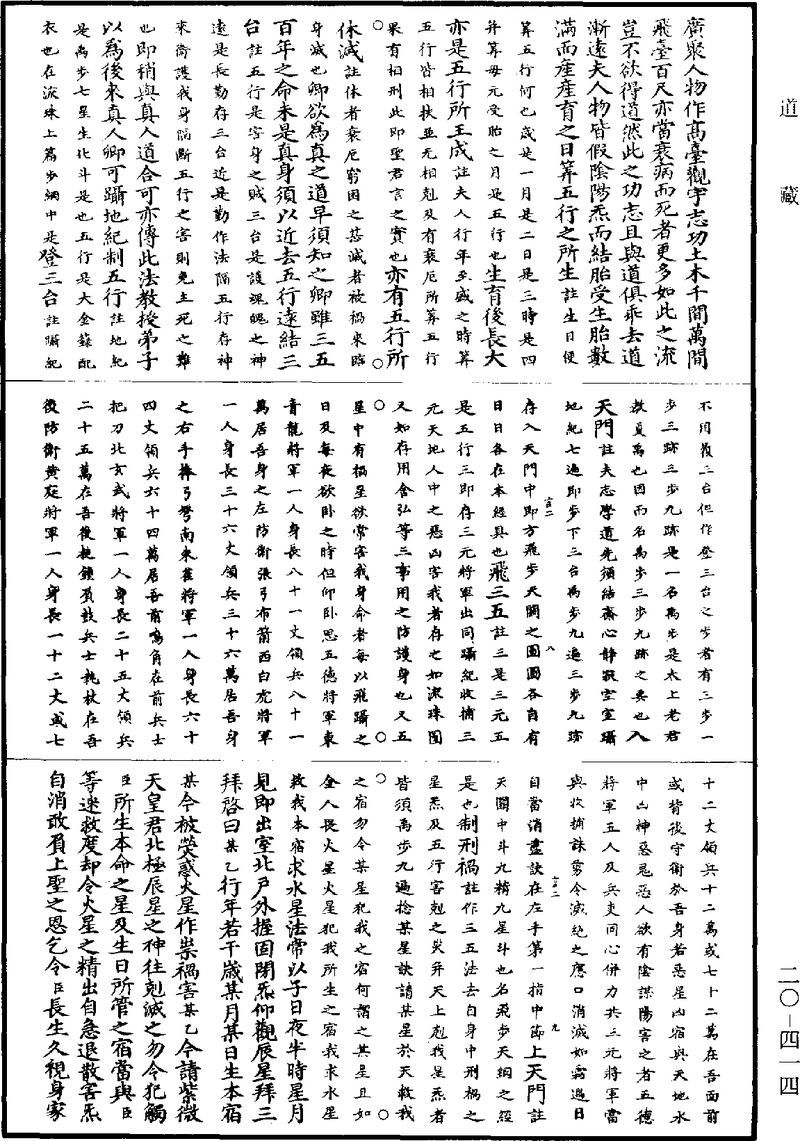 道藏
二〇-四一四
廣衆人物作髙臺觀宇志功土木千間萬間
飛臺百尺亦當衰病而死者更多如此之流
豈不欲得道然此之功志且與道俱乖去道
漸遠夫人物皆假陰陽炁而結胎受生胎數
滿而產產育之日筭五行之所生註生日便
筭五行何也歲是一月是二日是三時是四
并筭母元受胎之月是五行也生育後長大
亦是五行所王成註夫人行年至盛之時筭
五行皆相扶並无相剋及有衰厄所筭五行
果有相刑此即聖君言之實也亦有五行所
休滅註休者衰厄窮困之甚滅者被禍來臨
身滅也卿欲爲真之道早須知之卿雖三五
百年之命未是真身須以近去五行遠結三
台註五行是害身之賊三台是護魂魄之神
遠是長勤存三台近是勤作法隔五行存神
來衛護我身隔斷五行之害則免主死之難
也即稍與真人道合可亦傳此法教授弟子
以爲後來真人卿可躡地紀制五行註地紀
是禹步七星生北斗是也五行是大金籙配
衣也在流珠上篇步綱中是登三台註躡紀
不用履三台但作登三台之步者有三步一
步三跡三步九跡是一名禹步是太上老君
教夏禹也因而名禹步三步九跡之要也入
天門註夫志學道先須結齋心靜嚴空室躡
地紀七遍即步下三台禹步九遍三步九跡
存入天門中即方飛步天關之圖圖各自有
言二八
日日各在本經具也飛三五註三是三元五
是五行三即存三元將軍出同躡紀收捕三
元天地人中之惡凶害我者存之如流珠圖
又如存用舍弘等三事用之防護身也又五
星中有禍星欲常害我身命者每以飛躡之
日及每夜欲卧之時但仰卧思五德將軍東
青龍將軍一人身長八十一丈領兵八十一
萬居吾身之左防衛張弓布箭西白虎將軍
一人身長三十六丈領兵三十六萬居吾身
之右手捧弓弩南朱雀將軍一人身長六十
四丈領兵六十四萬居吾前鳴角在前兵士
把刀北玄武將軍一人身長二十五丈領兵
二十五萬在吾後執鍾負鼓兵士執杖在吾
後防衛黃庭將軍一人身長一十二丈或七
十二丈領兵十二萬或七十二萬在吾面前
或背後守衛於吾身若惡星凶宿與天地水
中山神惡鬼惡人欲有陰謀陽害之者五德
將軍五人及兵吏同心併力共三元將軍當
與收捕誅剪令滅絕之應口消滅如霜遇日
自當消盡訣在左手第一指中節上天門註
言二九
天關中斗九精九星斗也名飛步天綱之經
是也制刑禍註作三五法去自身中刑禍之
星炁及五行害剋之炁并天上剋我星炁者
皆須禹步九遍捻某星訣請某星於天救我
之宿勿令某星犯我之宿何謂之某星且如
金人畏火星火星是犯我所生之宿我求水星
救我本宿求水星法常以子日夜半時星月
見即出室北戶外握固閉炁仰觀辰星拜三
拜啓曰某乙行年若干歲某月某日生本宿
某今被熒惑火星作祟禍害某乙今請紫微
天皇君北極辰星之神往剋滅之勿令犯觸
臣所生本命之星及生日所管之宿當與臣
等遂救度却令火星之精出自急退散害炁
自消敢負上聖之恩乞令臣長生久視身家